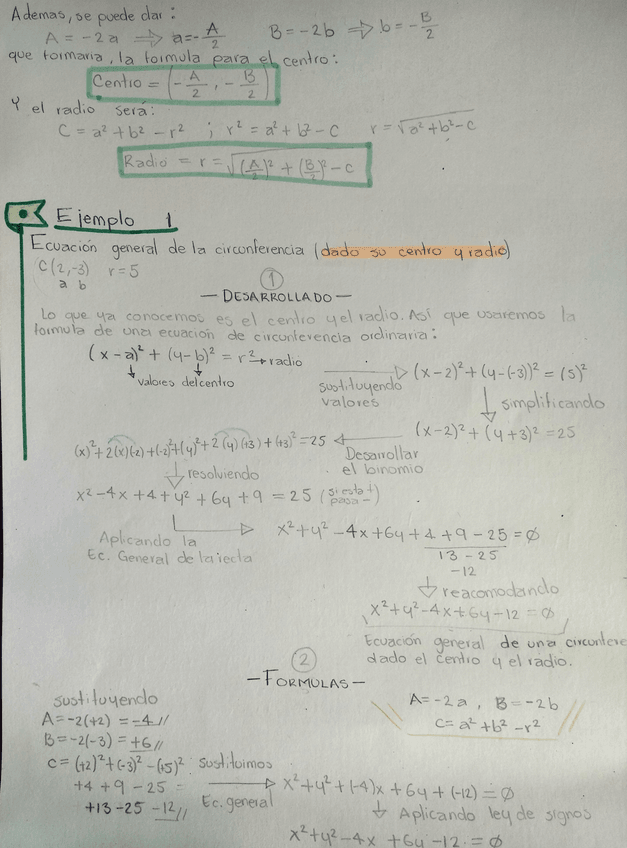 Ademas, se puede dar:
A = -2a ⇒ a = -A/2    B = -2b ⇒ b = -B/2
que formaria, la formula para el centro:
Centro = (-A/2, -B/2)
Y el radio será:
C = a² + b² - r² ; r² = a² + b² - C    r = √a² + b² - c
Radio = r = √(A/2)² + (B/2)² - c
Ejemplo 1
Ecuación general de la circunferencia (dado su centro y radio)
C(2,-3)  r = 5
a b
①
— DESARROLLADO —
Lo que ya conocemos es el centro y el radio. Asi que usaremos la
formula de una ecuación de circunferencia ordinaria:
(x-a)² + (y-b)² = r² → radio
valores del centro
sustituyendo
valores
(x-2)² + (y-(-3))² = (5)²
simplificando
(x-2)² + (y+3)² = 25
Desarrollar
el binomio
(x)² + 2(x)(-2) + (-2)² + (y)² + 2(y)(+3) + (+3)² = 25
resolviendo
x² - 4x + 4 + y² + 6y + 9 = 25 (si esta +
pasa -)
Aplicando la
Ec. General de la recta
x² + y² - 4x + 6y + 4 + 9 - 25 = Ø
13 - 25
-12
reacomodando
x² + y² - 4x + 6y - 12 = Ø
Ecuación general de una circunfere
dado el centro y el radio.
②
— FORMULAS —
A = -2a , B = -2b
C = a² + b² - r²
sustituyendo
A = -2(+2) = -4 //
B = -2(-3) = +6 //
C = (+2)² + (-3)² - (+5)²
+4 + 9 - 25 =
+13 - 25 -12 //
Sustituimos
Ec. general
x² + y² + (-4)x + 6y + (-12) = Ø
Aplicando ley de signos
x² + y² - 4x + 6y - 12 = Ø